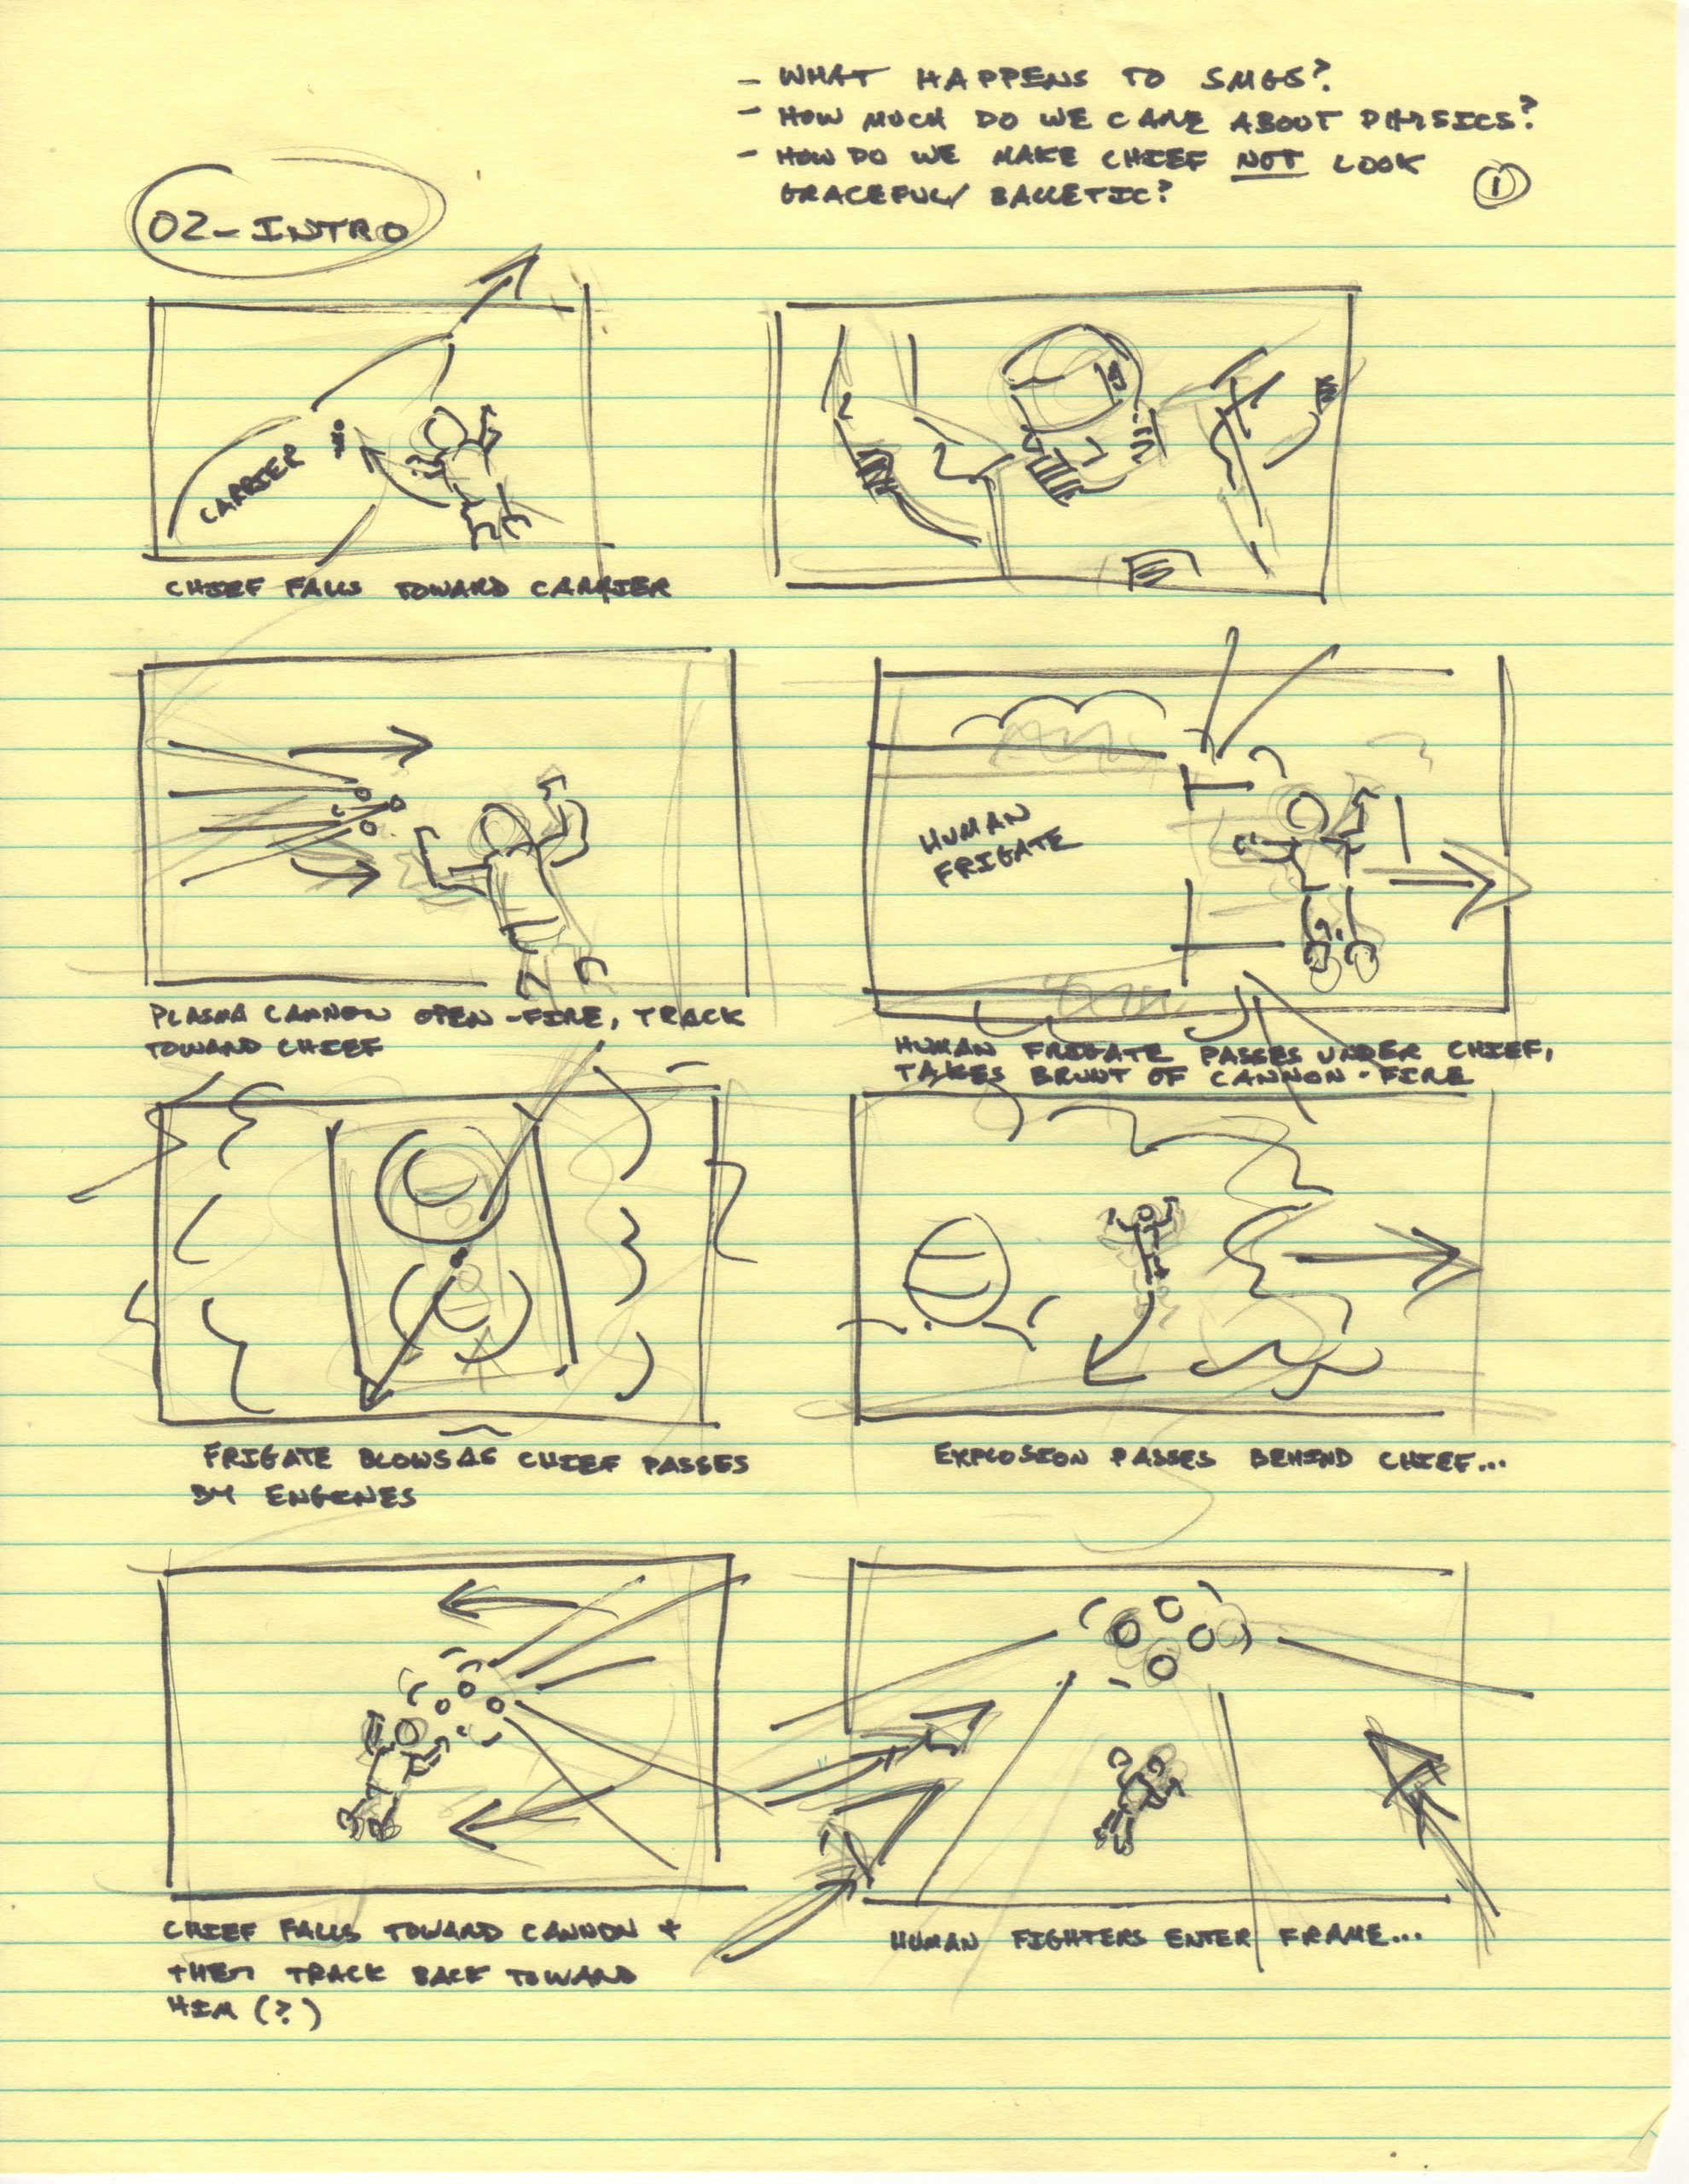 - WHAT HAPPENS TO SMGS?
- HOW MUCH DO WE CARE ABOUT PHYSICS?
- HOW DO WE MAKE CHIEF NOT LOOK
GRACEFUL/ BALLETIC?
1
02-INTRO
CARRIER
CHIEF FALLS TOWARD CARRIER
PLASMA CANNON OPEN-FIRE, TRACK
TOWARD CHIEF
HUMAN
FRIGATE
HUMAN FRIGATE PASSES UNDER CHIEF,
TAKES BRUNT OF CANNON-FIRE
FRIGATE BLOWS AS CHIEF PASSES
BY ENGINES
EXPLOSION PASSES BEHIND CHIEF...
CHIEF FALLS TOWARD CANNON +
THEY TRACK BACK TOWARD
HIM (?)
HUMAN FIGHTERS ENTER FRAME...